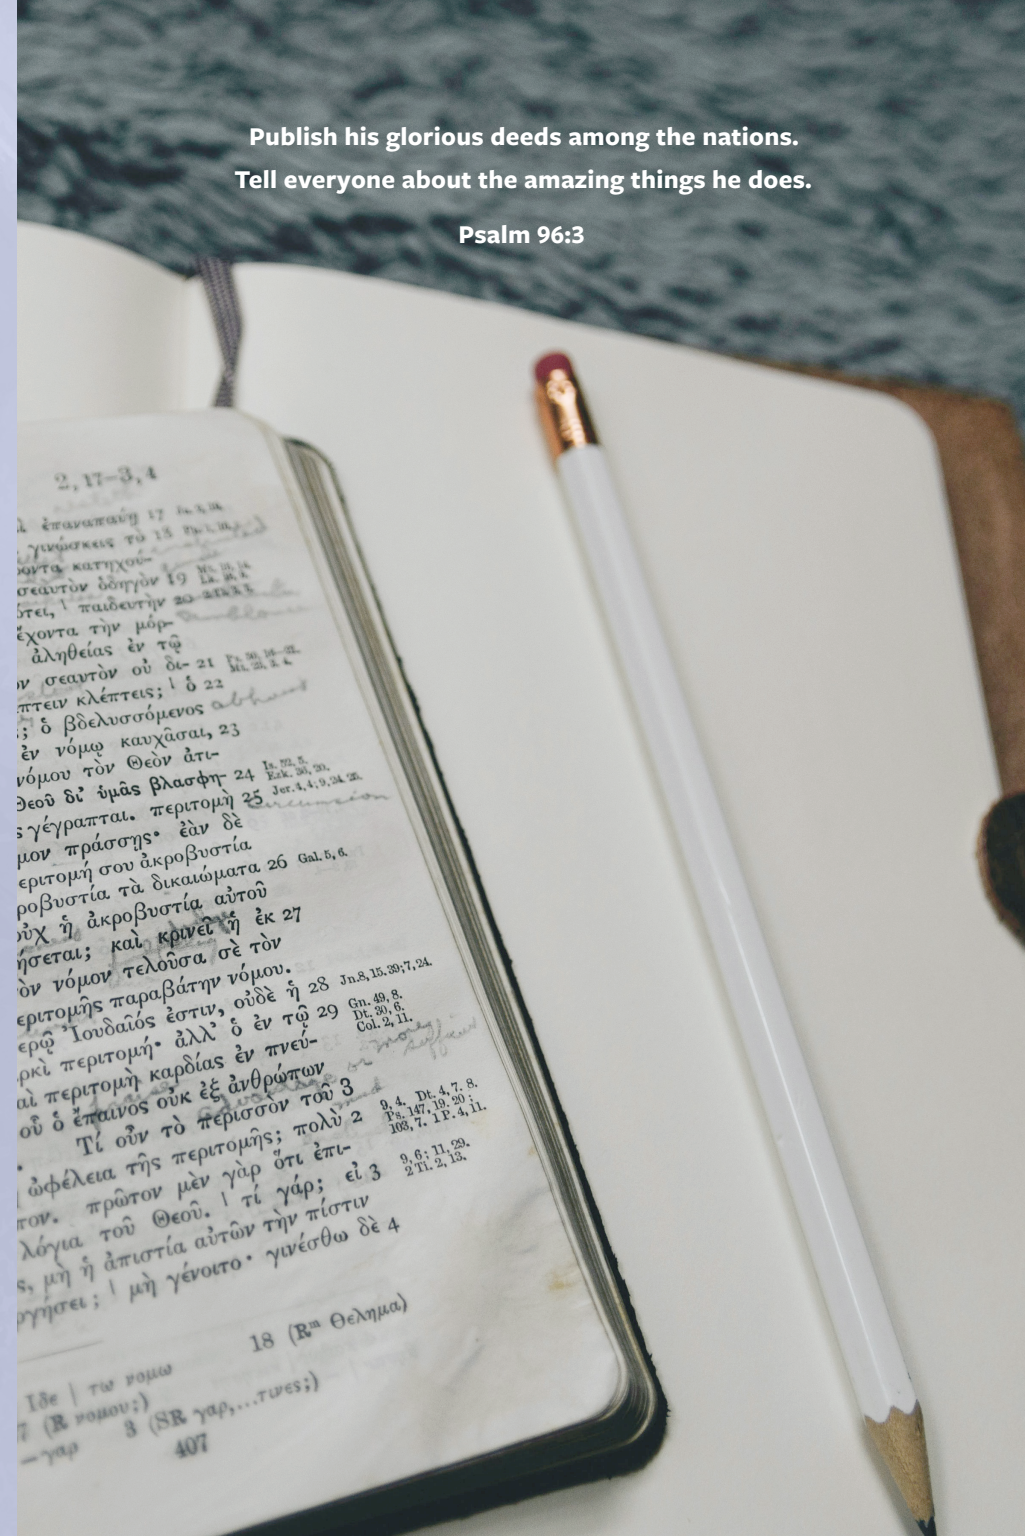 Publish his glorious deeds among the nations.
Tell everyone about the amazing things he does.
Psalm 96:3
2, 17–3, 4
ἐπαναπαύῃ 17
γινώσκεις τὸ 18
κατηχού-
σεαυτὸν ὁδηγὸν 19
παιδευτὴν 20
ἔχοντα τὴν μόρ-
ἀληθείας ἐν τῷ
σεαυτὸν οὐ δι- 21
κλέπτεις; | ὁ 22
; ὁ βδελυσσόμενος
ἐν νόμῳ καυχᾶσαι, 23
νόμου τὸν Θεὸν ἀτι-
Θεοῦ δι’ ὑμᾶς βλασφη- 24 Is. 52, 5. Ezk. 36, 20.
γέγραπται. περιτομὴ 25 Jer. 4, 4; 9, 24. 25.
πράσσῃς· ἐὰν δὲ
περιτομή σου ἀκροβυστία
τὰ δικαιώματα 26 Gal. 5, 6.
οὐχ ἡ ἀκροβυστία αὐτοῦ
καὶ κρινεῖ ἡ ἐκ 27
νόμον τελοῦσα σὲ τὸν
περιτομῆς παραβάτην νόμου.
Ἰουδαῖός ἐστιν, οὐδὲ ἡ 28 Jn. 8, 15. 39; 7, 24.
περιτομή· ἀλλ’ ὁ ἐν τῷ 29 Gn. 49, 8.
Dt. 30, 6.
Col. 2, 11.
περιτομὴ καρδίας ἐν πνεύ-
οὗ ὁ ἔπαινος οὐκ ἐξ ἀνθρώπων
Τί οὖν τὸ περισσὸν τοῦ 3
ὠφέλεια τῆς περιτομῆς; πολὺ 2 9, 4. Dt. 4, 7. 8.
Ps. 147, 19. 20;
103, 7. 1 P. 4, 11.
πρῶτον μὲν γὰρ ὅτι ἐπι-
λόγια τοῦ Θεοῦ. | τί γάρ; εἰ 3 9, 6; 11, 29.
2 Ti. 2, 13.
μὴ ἡ ἀπιστία αὐτῶν τὴν πίστιν
; | μὴ γένοιτο· γινέσθω δὲ 4
18 (Rᵐ Θελημα)
Ιδε | τω νομω
7 (R νομου;)
–γαρ 3 (SR γαρ,...τινες;)
407